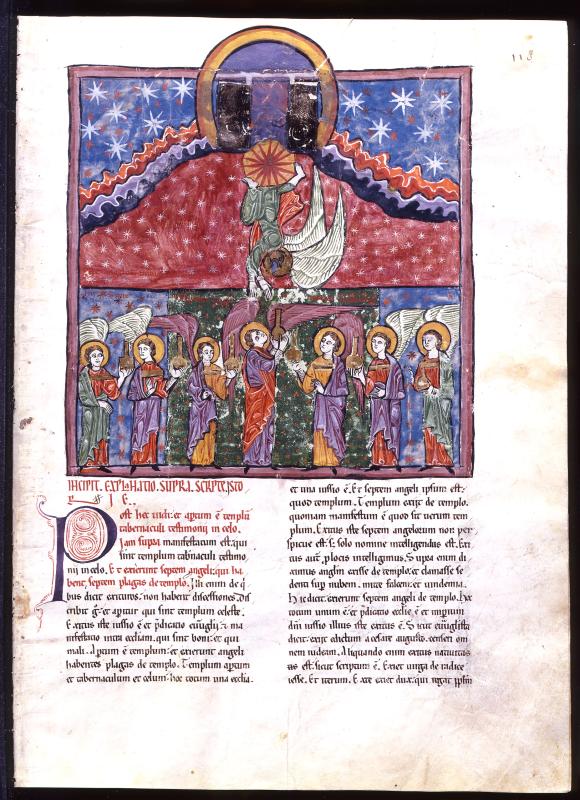 113
INCIPIT. EXPLANATIO. SUPRA. SCRIPTE. ISTO
RIE.
Post hec uidi: et aptum ē templū
tabernaculi testimonij in celo.
Iam supra manifestatum est. qui
sint templum tabnaculi testimo
nij in celo. Et exierunt septem angeli: qui ha
bent, septem plagas de templo. Illi enim de q̄
bus dicit exituros: non habent discessiones. Dis
cribit ḡ: et apitur qui sint templum celeste.
Exitus iste iussio ē et p̄dicatio euūglij: ut ma
nifestatio intra ecclīam. qui sint boni: et qui
mali. Aptum ē templum: et exierunt angeli
habentes plagas de templo. Templum aptum
et tabernaculum et celum: hoc totum una ecclīa.
et una iussio ē. Et septem angeli ipsum est:
quod templum. Templum exijt de templo.
quoniam manifestum ē quod sit uerum tem
plum. Exitus iste septem angelorum non per
spicue est: sed solo nomine intelligendus est. Exi
tus aut̄ p locis intelligimus. Supra enim di
ximus anglm exisse de templo: et clamasse se
denti sup nubem. mitte falcem: et uindemia.
Hic dicit: exierunt septem angeli de templo. Hec
totum unum ē: et p̄dicatio ecclīe ē: et imperium
dn̄i iussio illius iste exitus ē. Sicut euūglista
dicit: exijt edictum a cesare augusto. censeri om
nem iudeam. Aliquando enim exitus natiuitas
est. sicut scriptum ē. Exiet uirga de radice
iesse. Et iterum. Ex te exiet dux: qui regat ppl̄m